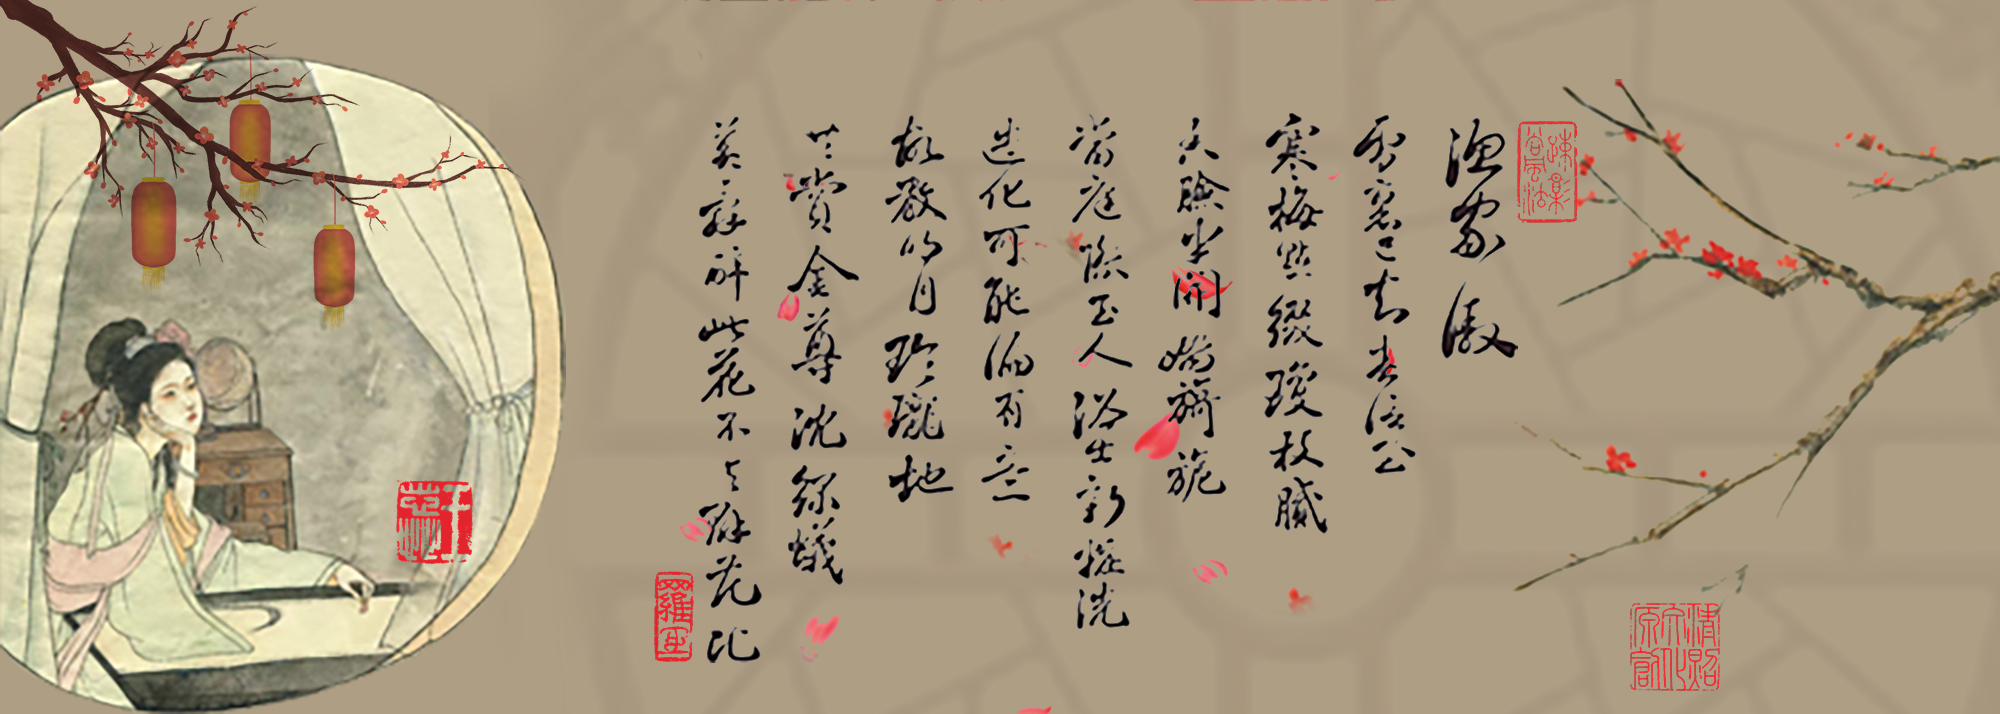 漁家傲
雪裏已知春信至
寒梅點綴瓊枝膩
香臉半開嬌旖旎
當庭際玉人浴出新妝洗
造化可能偏有意
故教明月玲瓏地
共賞金尊沈綠蟻
莫辭醉此花不与群花比
清照文化原創